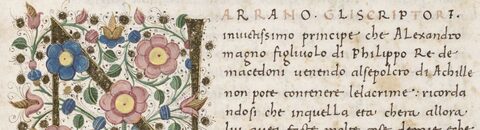 NARRANO · GLISCRIPTORI ·
inuictissimo principe che Alexandro
magno figliuolo di Philippo Re de
macedoni uenendo alsepolcro di Achille
non pote contenere lelacrime : ricorda
ndosi che inquella eta chera allora